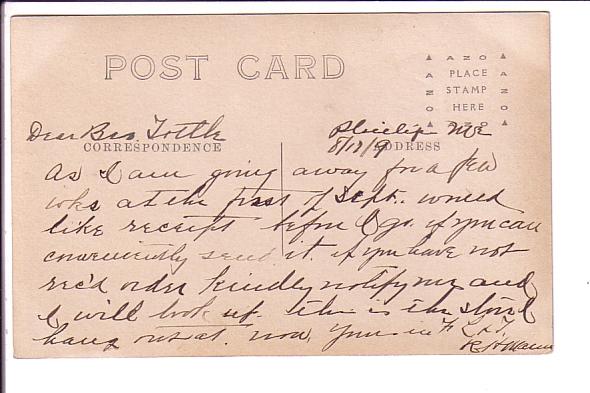 POST CARD
AZO
PLACE
STAMP
HERE
AZO
CORRESPONDENCE
ADDRESS
Dear Bro. Tottle
Phillip Me
8/19/9
As I am going away for a few
wks at the first of Sept. would
like receipt before I go. if you can
conveniently send it. if you have not
rec'd order kindly notify me and
I will look up. this is the store I
hang out at. now, Yours in F. L. & T.
R H Mann